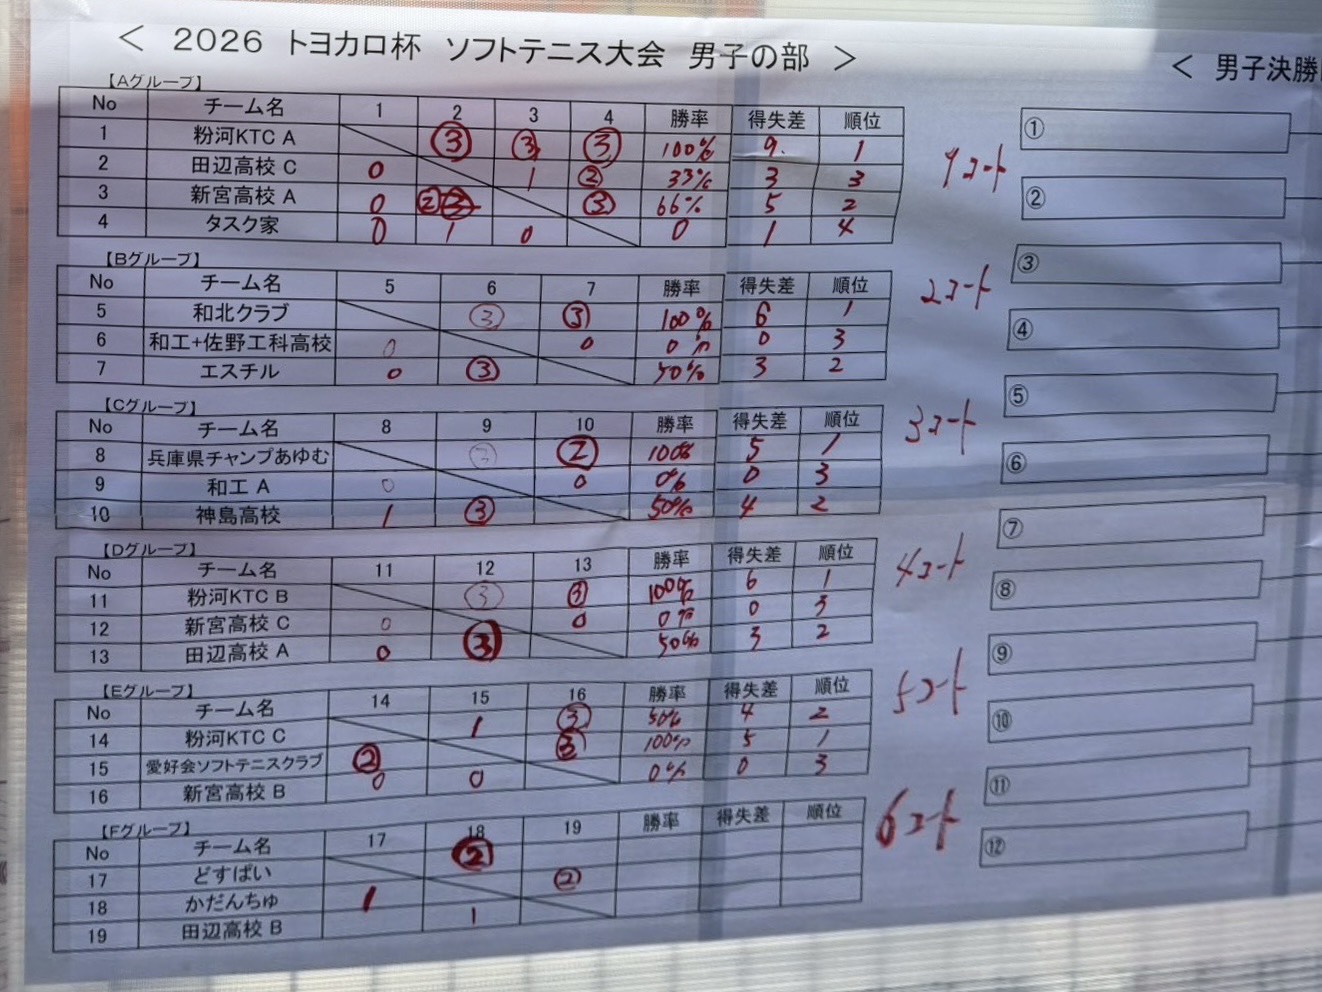 < 2026 トヨカロ杯 ソフトテニス大会 男子の部 >
【Aグループ】
No チーム名 1 2 3 4 勝率 得失差 順位
1 粉河KTC A ③ ③ ③ 100% 9 1
2 田辺高校 C 0 1 ② 33% 3 3
3 新宮高校 A 0 ② ③ 66% 5 2
4 タスク家 0 1 0 0 1 4
1コート
【Bグループ】
No チーム名 5 6 7 勝率 得失差 順位
5 和北クラブ ③ ③ 100% 6 1
6 和工+佐野工科高校 0 0 0% 0 3
7 エスチル 0 ③ 50% 3 2
2コート
【Cグループ】
No チーム名 8 9 10 勝率 得失差 順位
8 兵庫県チャンプあゆむ ② 100% 5 1
9 和工 A 0 0 0% 0 3
10 神島高校 1 ③ 50% 4 2
3コート
【Dグループ】
No チーム名 11 12 13 勝率 得失差 順位
11 粉河KTC B ③ ③ 100% 6 1
12 新宮高校 C 0 0 0% 0 3
13 田辺高校 A 0 ③ 50% 3 2
4コート
【Eグループ】
No チーム名 14 15 16 勝率 得失差 順位
14 粉河KTC C 1 ③ 50% 4 2
15 愛好会ソフトテニスクラブ ② ③ 100% 5 1
16 新宮高校 B 0 0 0% 0 3
5コート
【Fグループ】
No チーム名 17 18 19 勝率 得失差 順位
17 どすぱい ②
18 かだんちゅ 1 ②
19 田辺高校 B 1
6コート
< 男子決勝
①
②
③
④
⑤
⑥
⑦
⑧
⑨
⑩
⑪
⑫